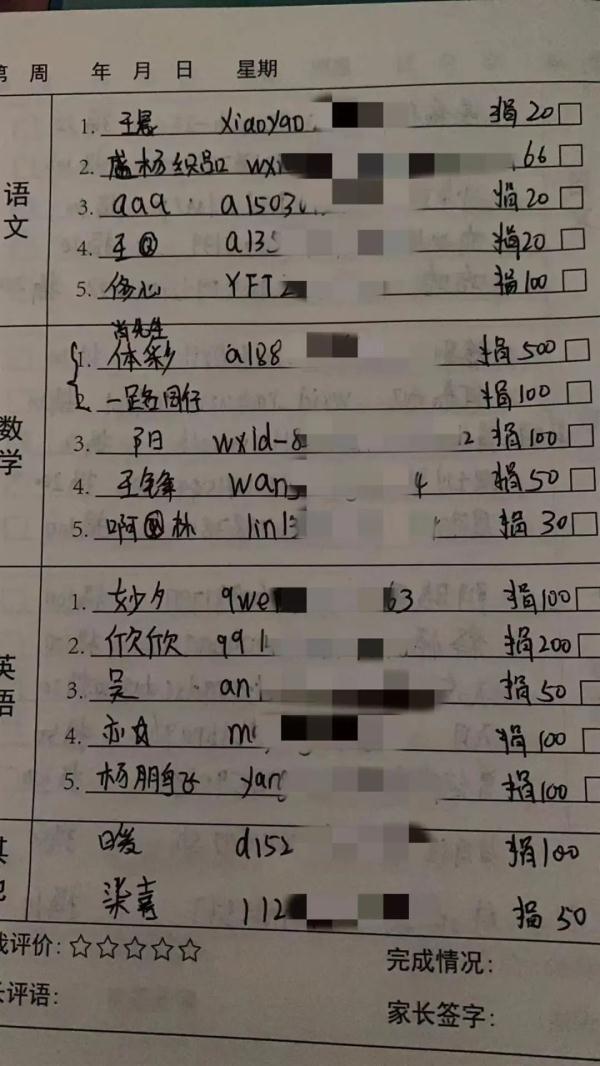 第 周 年 月 日 星期
语文
1. 王晨 xiaoyao 捐20
2. 盛杨织品 wxi 66
3. aaa a1503 捐20
4. 王 a13 捐20
5. 修心 YFT 捐100
数学
肖先生
1. 体彩 a188 捐500
2. 一路同行 捐100
3. 阳 wxid-8 2 捐100
4. 王锋 wang 4 捐50
5. 啊 林 lin1 捐30
英语
1. 妙夕 qwe 63 捐100
2. 欣欣 991 捐200
3. 吴 an 捐50
4. 亦 m 捐100
5. 杨鹏飞 yan 捐100
其他
暖 d152 捐100
柒喜 112 捐50
我评价: ☆☆☆☆☆
完成情况:
长评语:
家长签字: